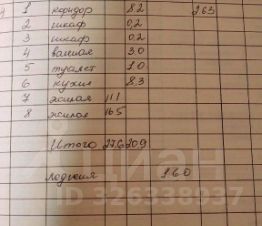 1 коридор 8.2 263
2 шкаф 0,2
3 шкаф 0.2
4 ванная 3.0
5 туалет 1.0
6 кухня 8.3
7 жилая 11.1
8 жилая 16.5
Итого 27.6 20.9
лоджия 1.6.0
циан
ID 326338937